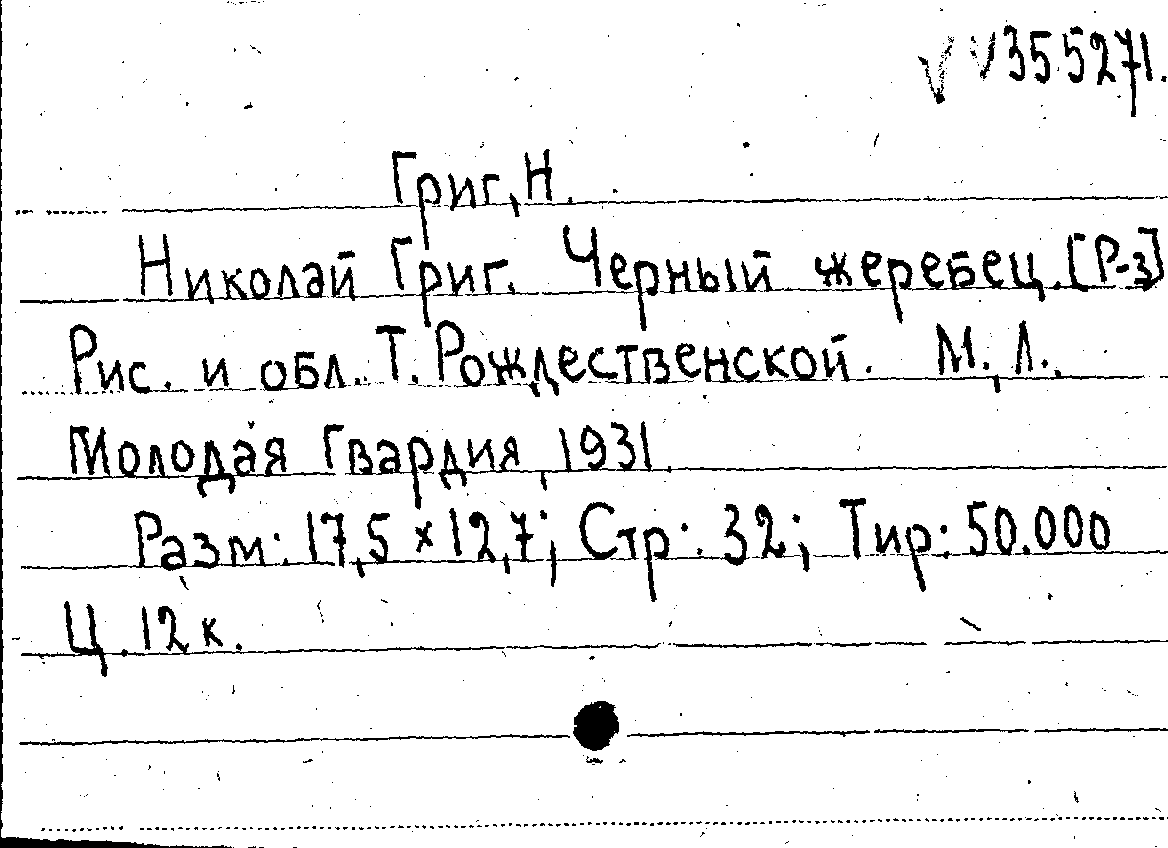 √ √ 355271.
Григ, Н.
Николай Григ. Черный жеребец. [Р-з]
Рис. и обл. Т. Рождественской. М., Л.,
Молодая Гвардия, 1931.
Разм: 17,5 × 12,7; Стр: 32; Тир: 50.000
Ц. 12 к.